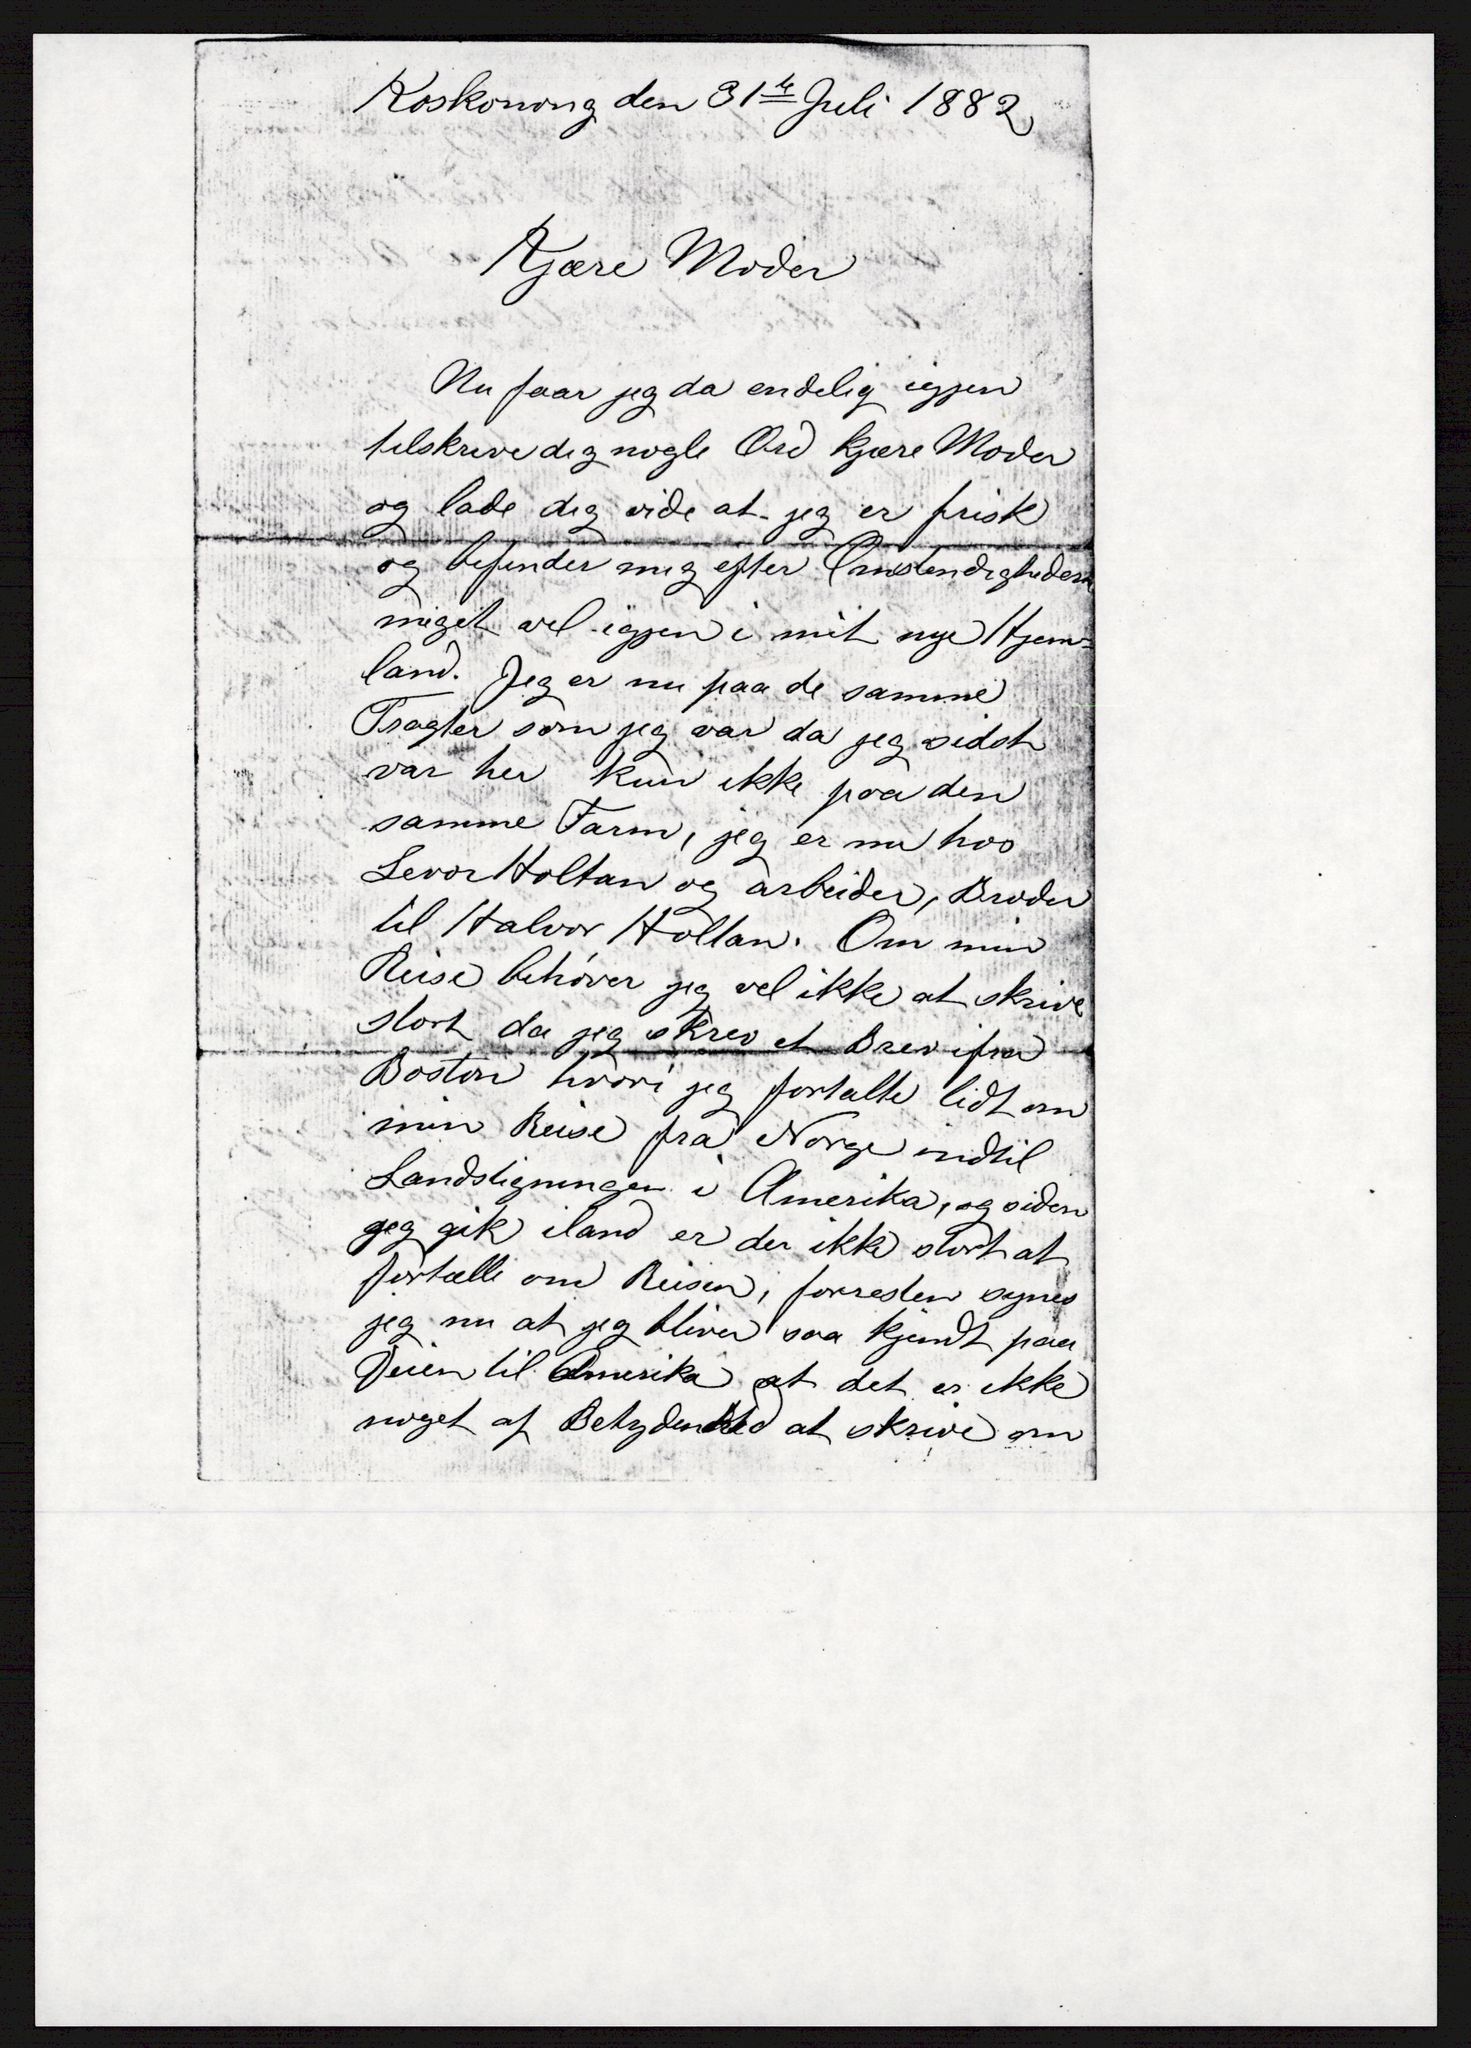 Koskonong den 31te Juli 1882
Kjære Moder
Nu faar jeg da endelig igjen
tilskrive dig nogle Ord kjære Moder
og lade dig vide at jeg er frisk
og befinder mig efter Omstendighedern
miget vel igjen i mit nye Hjem-
land. Jeg er nu paa de samme
Tragter som jeg var da jeg sidst
var her kun ikke paa den
samme Farm, jeg er nu hos
Levor Holtan og arbeider, Broder
til Halvor Holtan. Om min
Reise behøver jeg vel ikke at skrive
stort da jeg skrev et Brev ifra
Boston hvori jeg fortalte lidt om
min Reise fra Norge indtil
Landstigningen i Amerika, og siden
jeg gik iland er der ikke stort at
fortælle om Reisen, forresten synes
jeg nu at jeg bliver saa kjendt paa
Veien til Amerika at det er ikke
noget af Betydenhed at skrive om